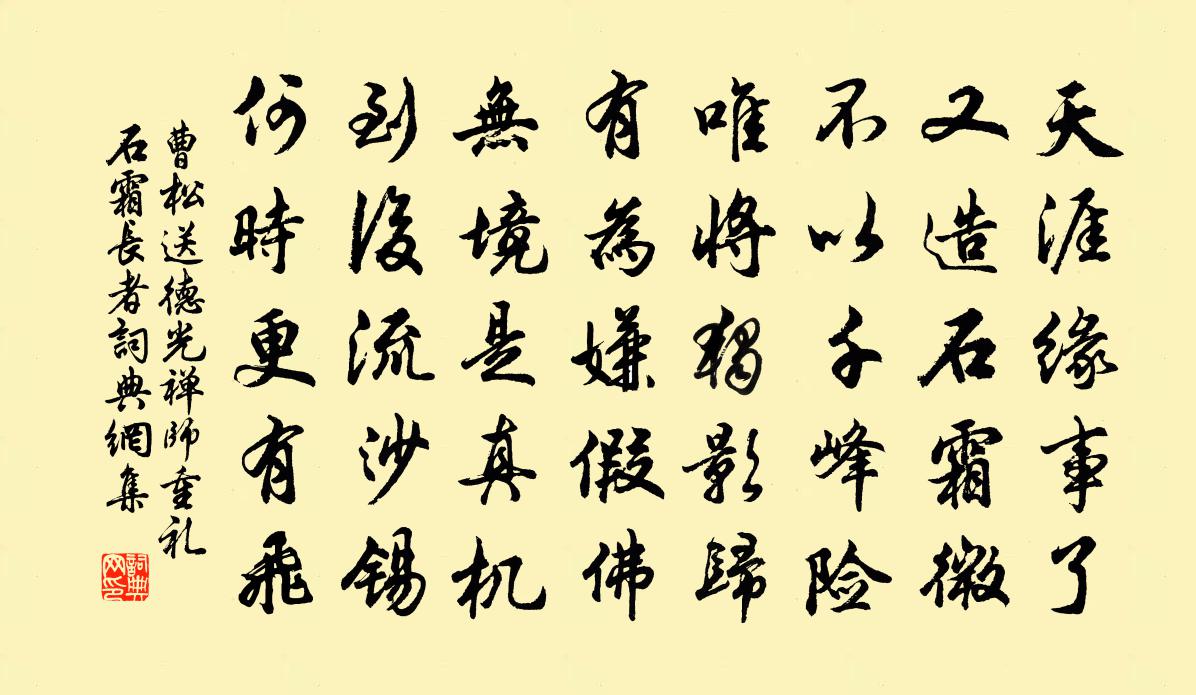 天涯緣事了
又造石霜微
不以千峰险
唯將獨影歸
有為嫌假佛
無境是真机
到後流沙錫
何時更有飛
曹松送德光禅師重礼
石霜長者詞典網集
詞典
网印